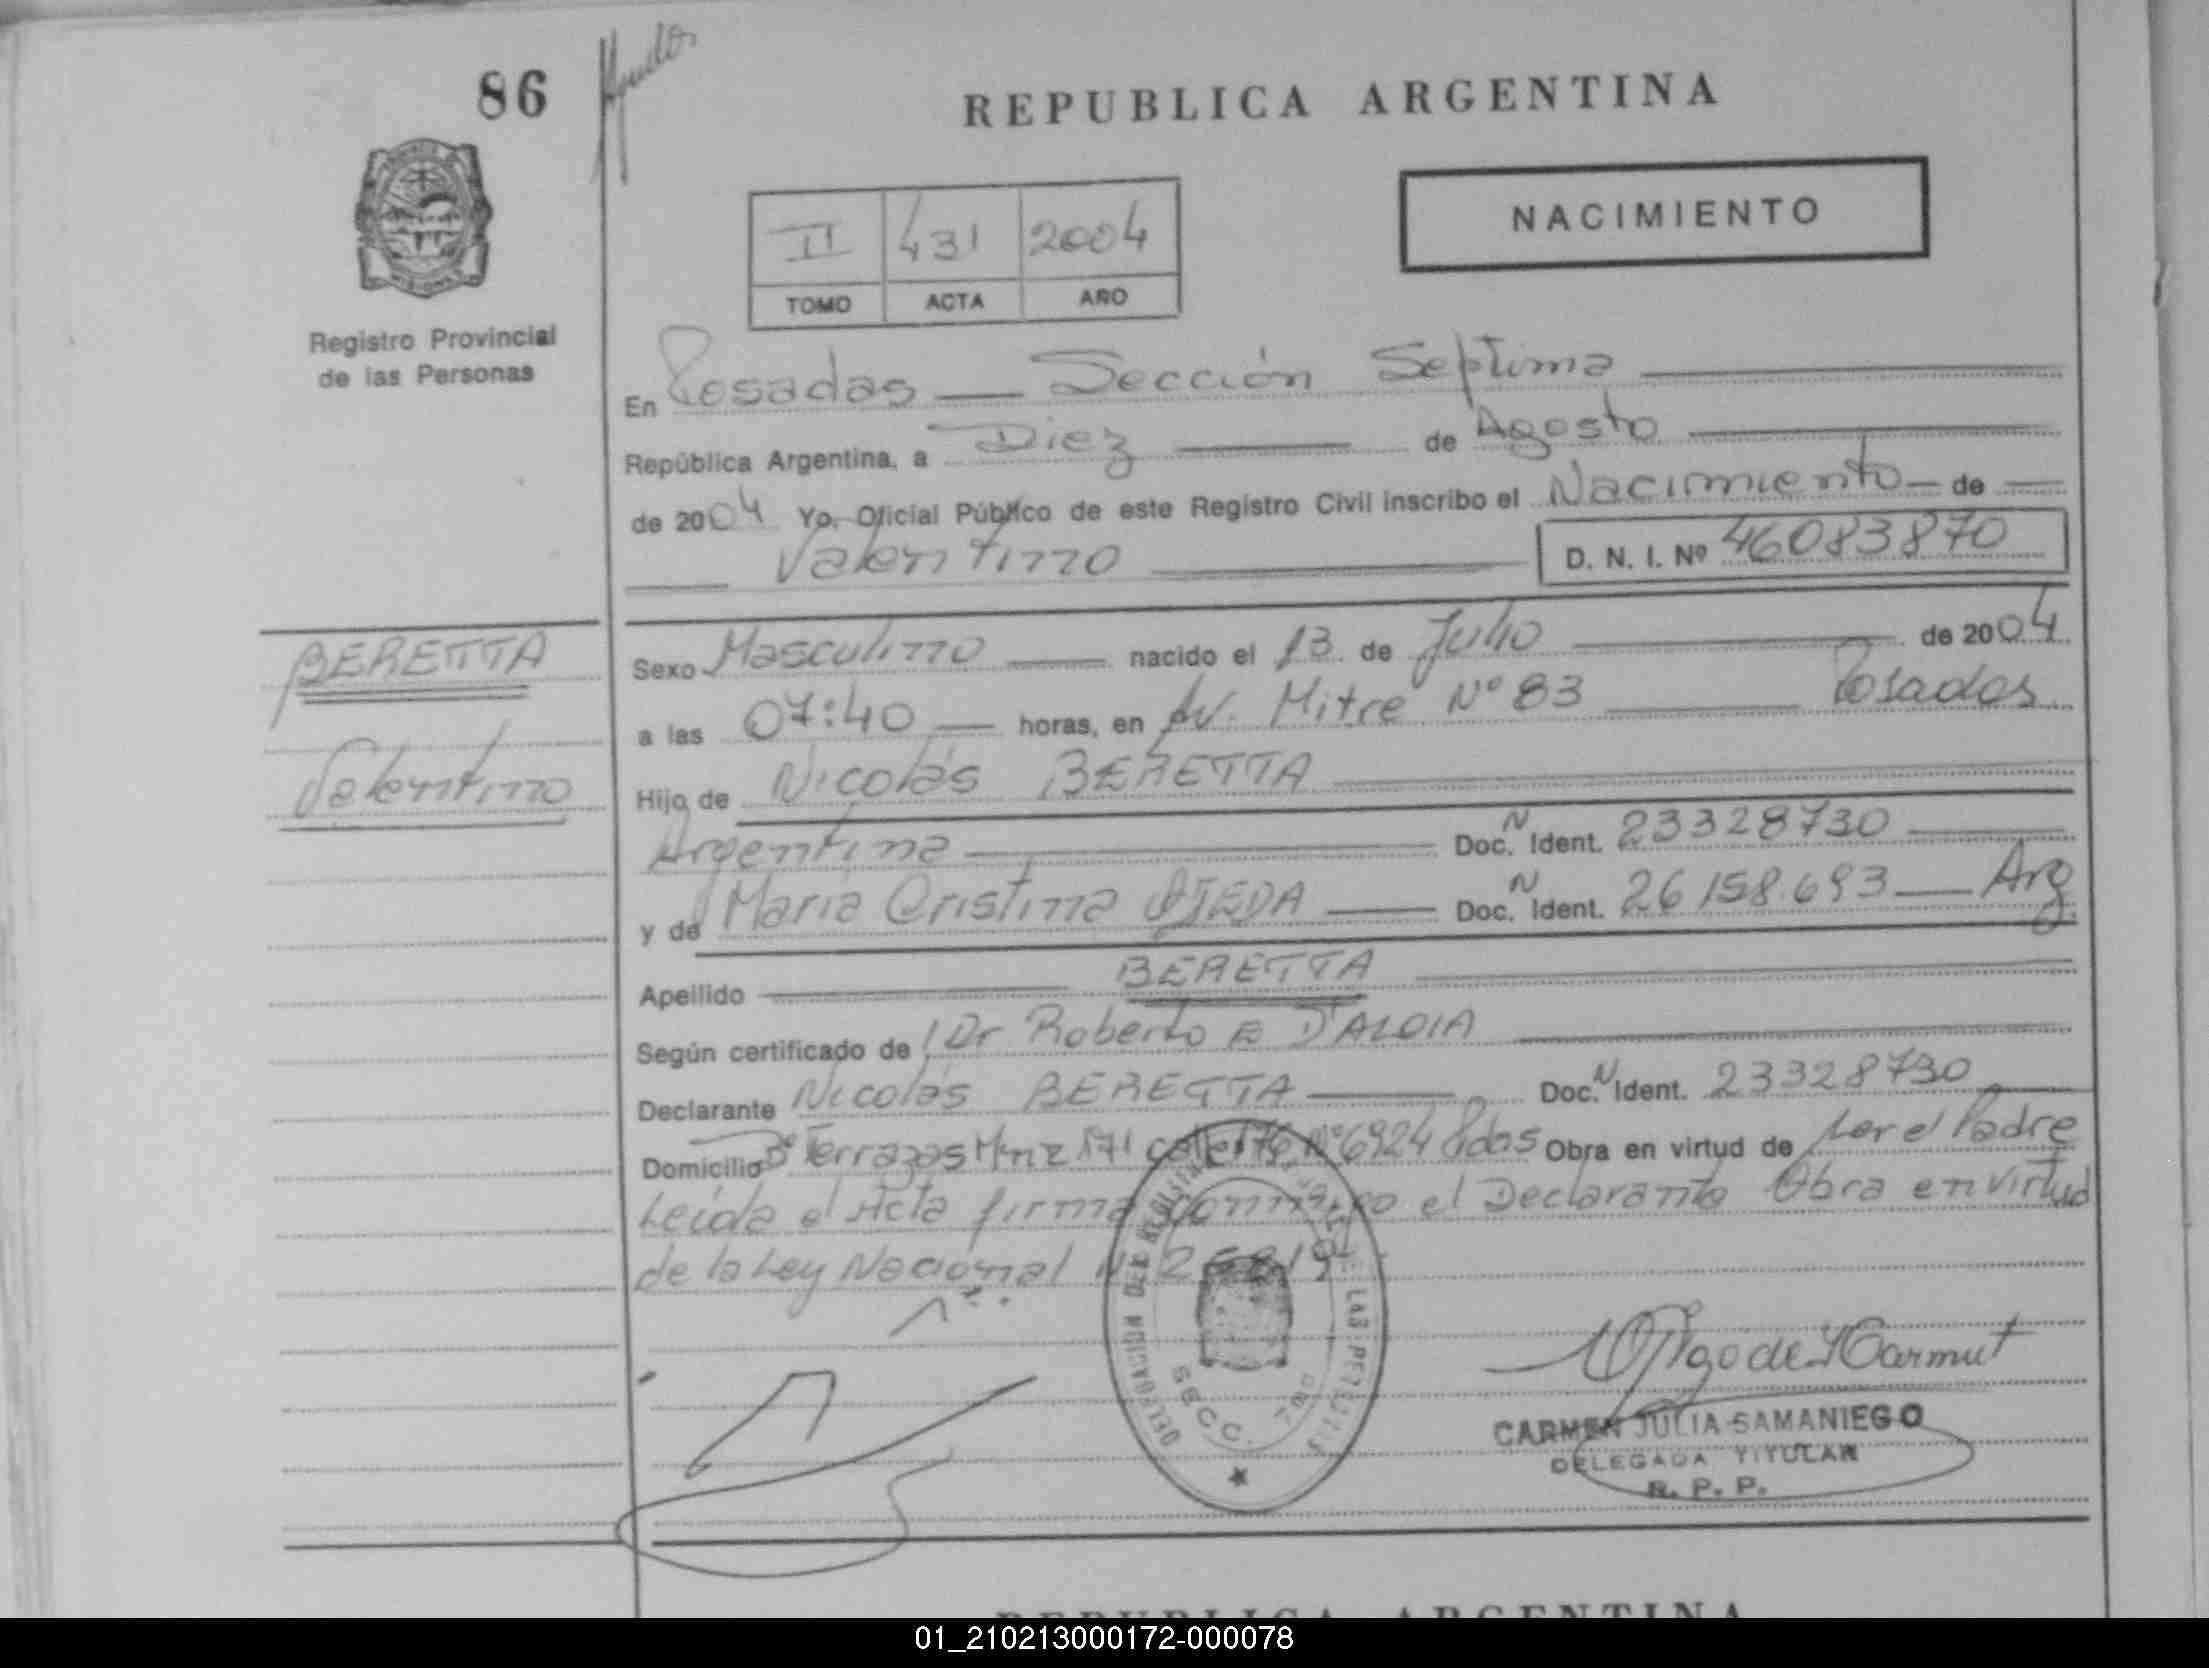 86
REPUBLICA ARGENTINA
NACIMIENTO
II 431 2004
TOMO ACTA AÑO
Registro Provincial
de las Personas
En Posadas — Sección Septima
República Argentina, a Diez de Agosto
de 2004 Yo, Oficial Público de este Registro Civil inscribo el Nacimiento — de
Valentino D. N. I. Nº 46083870
BERETTA
Valentino
Sexo Masculino nacido el 13 de Julio de 2004
a las 07:40 horas, en Av. Mitre Nº 83 Posadas
Hijo de Nicolás BERETTA
Argentina Doc. N Ident. 23328730
y de Maria Cristina OJEDA Doc. N Ident. 26158.693 — Arg
Apellido BERETTA
Según certificado de Dr Roberto E D'ALOIA
Declarante Nicolás BERETTA Doc. N Ident. 23328730
Domicilio Bº Terrazas Mnz 171 calle 176 Nº 6924 Pdas Obra en virtud de ser el Padre
Leida el Acta firma conmigo el Declarante Obra en virtud
de la Ley Nacional
DELEGACION DE LAS PERSONAS
SECC. 7
CARMEN JULIA SAMANIEGO
DELEGADA TITULAR
R. P. P.
REPUBLICA ARGENTINA
01_210213000172-000078